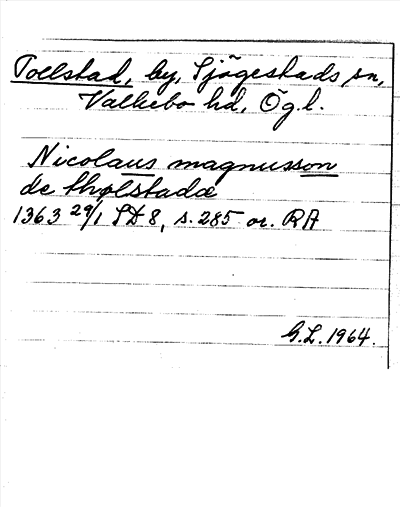 Tollstad, by, Sjögestads sn,
Valkebo hd, Ög.l.
Nicolaus magnusson
de tholstadæ
1363 29/1 SD 8, s. 285 or. RA
G.L. 1964.